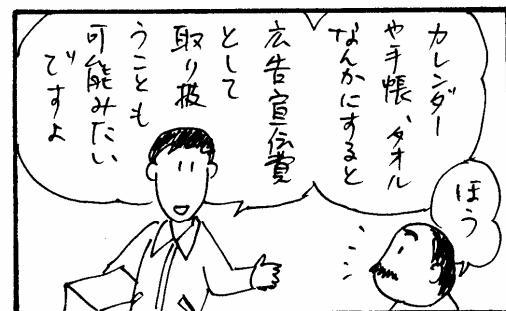 カレンダー
や手帳、タオル
なんかにすると
広告宣伝費
として
取り扱
うことも
可能みたい
ですよ
ほう